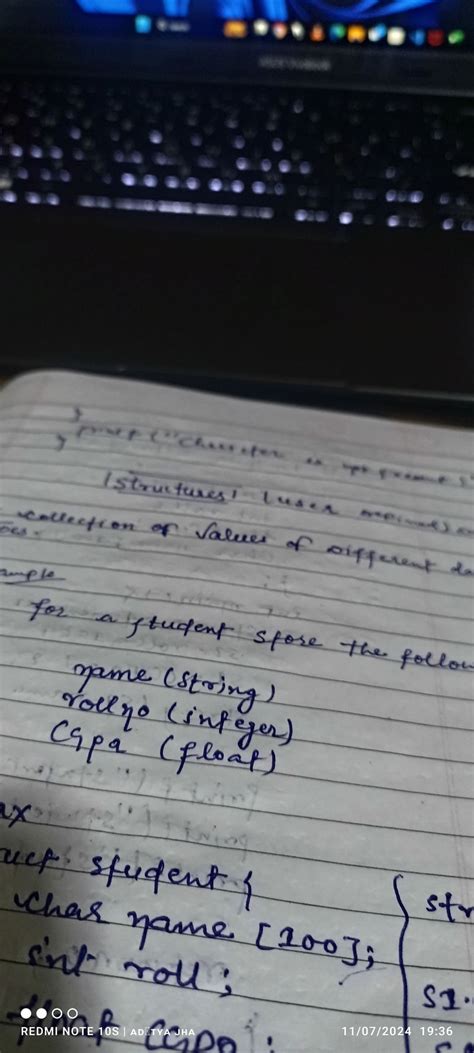 }
printf ("Character is not present
}
|structures| (user
collection of values of different da
pes.
ample
for a student store the follow
name (string)
rollno (integer)
Cgpa (float)
ax
uct student {
char name [100];
int roll;
float cgpa ;
str
s1.
REDMI NOTE 10S | ADITYA JHA
11/07/2024 19:36